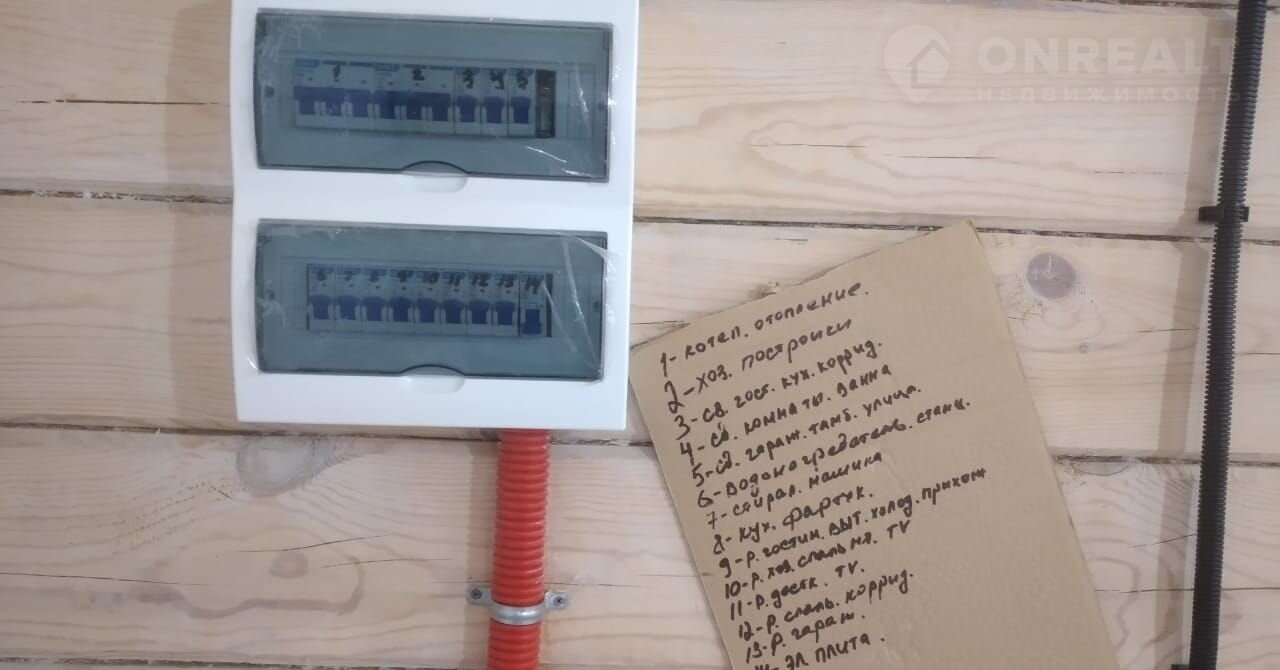 ONREALT
НЕДВИЖИМОСТЬ
1 2 3 4 5
6 7 8 9 10 11 12 13 14
1- котел. отопление.
2- хоз. постройки
3- св. гост. кух. коррид.
4- св. комнаты. ванна
5- св. гараж. тамб. улица.
6- водонагреватель. станц.
7- стирал. машинка
8- кух. фартук.
9- р. гостин. выт. холод. прихож
10- р. хоз. спальня. TV
11- р. детк. TV.
12- р. спаль. коррид.
13- р. гараж.
14- эл. плита.